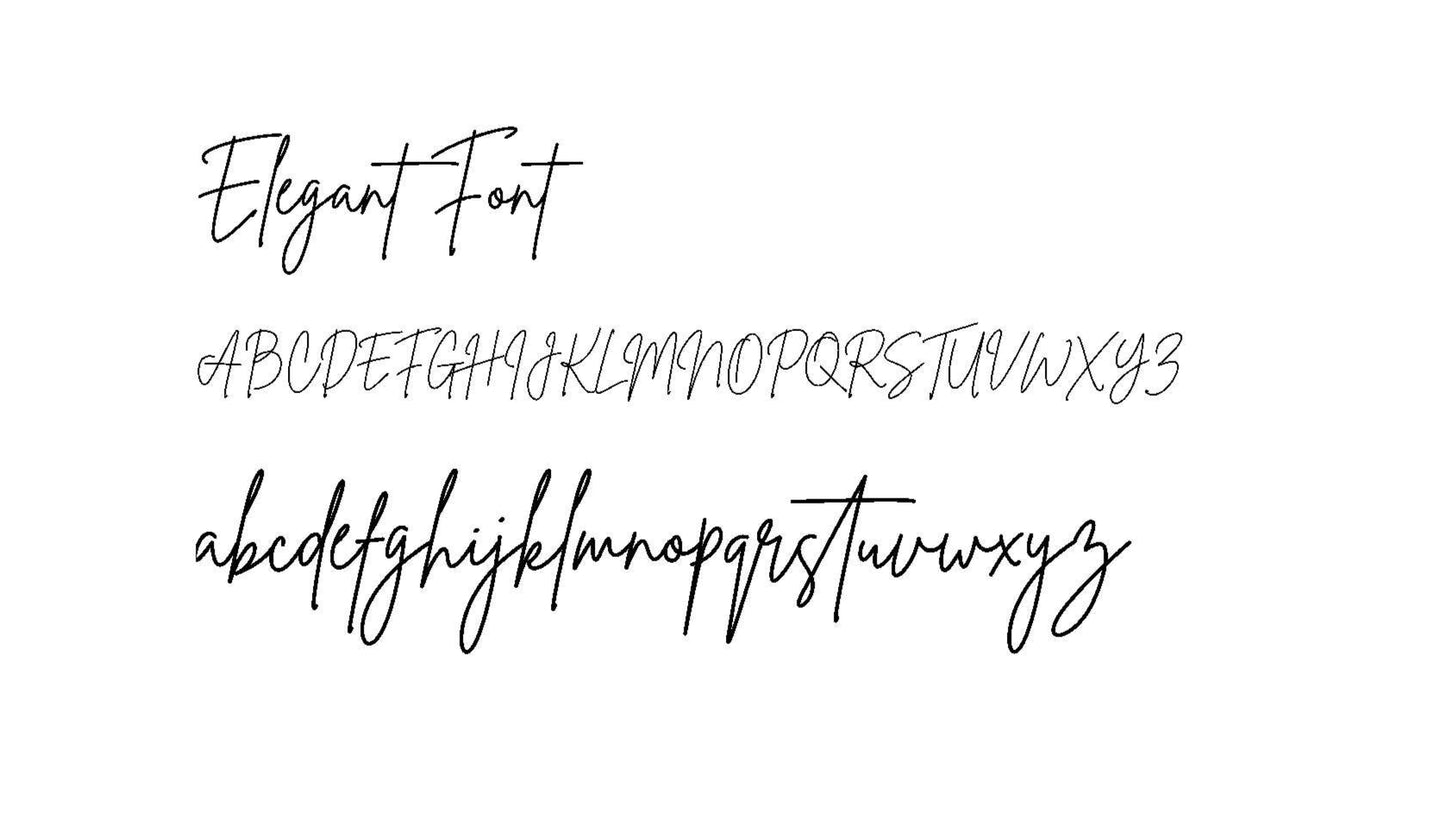 Elegant Font
ABCDEFGHIJKLMNOPQRSTUVWXYZ
abcdefghijklmnopqrstuvwxyz